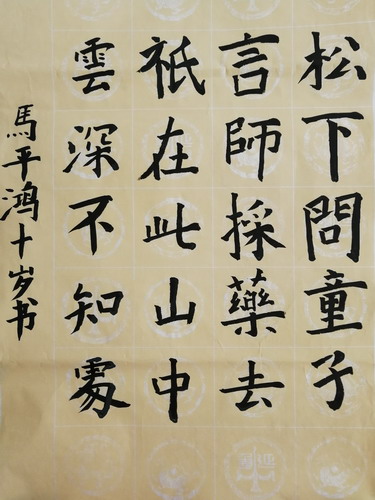 松下問童子
言師採藥去
祇在此山中
雲深不知處
馬平鴻十岁书